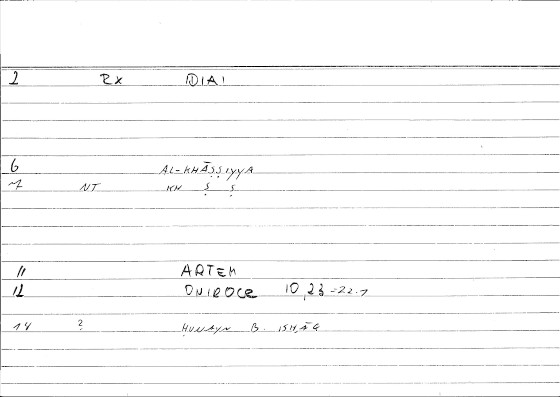 2 RX DIAI
6 AL-KHĀṢṢIYYA
7 NT KH Ṣ Ṣ
11 ARTEM
12 ONIROCE 10,23-22.1
14 ? ḤUNAYN B. ISḤĀQ